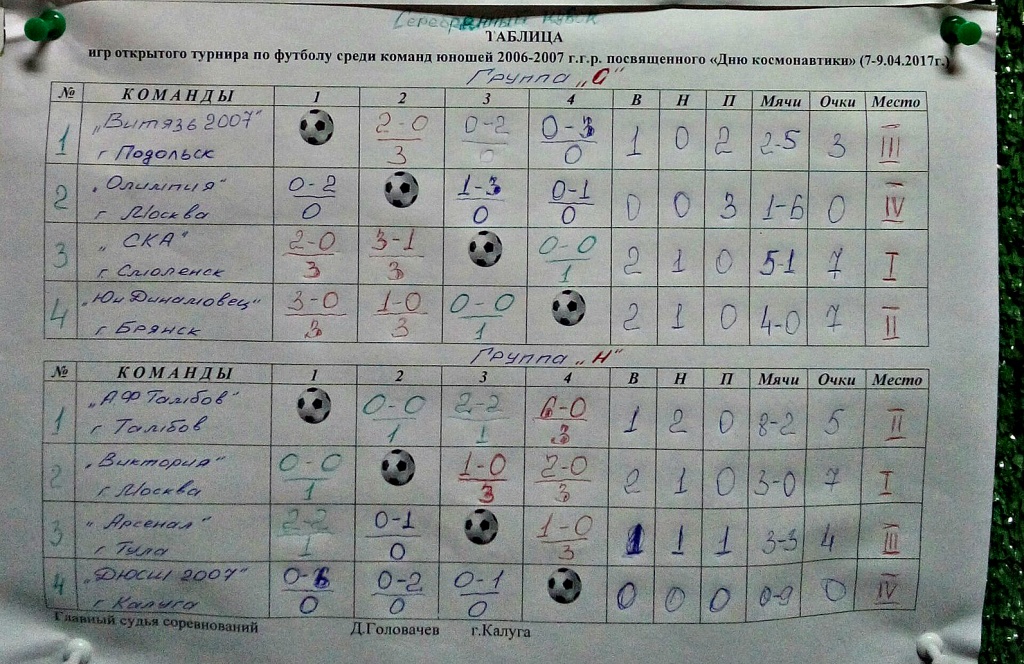 Серебрянный кубок
ТАБЛИЦА
игр открытого турнира по футболу среди команд юношей 2006-2007 г.г.р. посвященного «Дню космонавтики» (7-9.04.2017г.)
Группа „С"
№ КОМАНДЫ 1 2 3 4 В Н П Мячи Очки Место
1 „Витязь 2007" г Подольск 2-0 3 0-2 0 0-3 0 1 0 2 2-5 3 III
2 „Олимпия" г Москва 0-2 0 1-3 0 0-1 0 0 0 3 1-6 0 IV
3 „СКА" г Смоленск 2-0 3 3-1 3 0-0 1 2 1 0 5-1 7 I
4 „Юн Динамовец" г Брянск 3-0 3 1-0 3 0-0 1 2 1 0 4-0 7 II
Группа „Н"
№ КОМАНДЫ 1 2 3 4 В Н П Мячи Очки Место
1 „АФ Тамбов" г Тамбов 0-0 1 2-2 1 6-0 3 1 2 0 8-2 5 II
2 „Виктория" г Москва 0-0 1 1-0 3 2-0 3 2 1 0 3-0 7 I
3 „Арсенал" г Тула 2-2 1 0-1 0 1-0 3 1 1 1 3-3 4 III
4 „ДЮСШ 2007" г Калуга 0-6 0 0-2 0 0-1 0 0 0 0 0-9 0 IV
Главный судья соревнований Д.Головачев г.Калуга